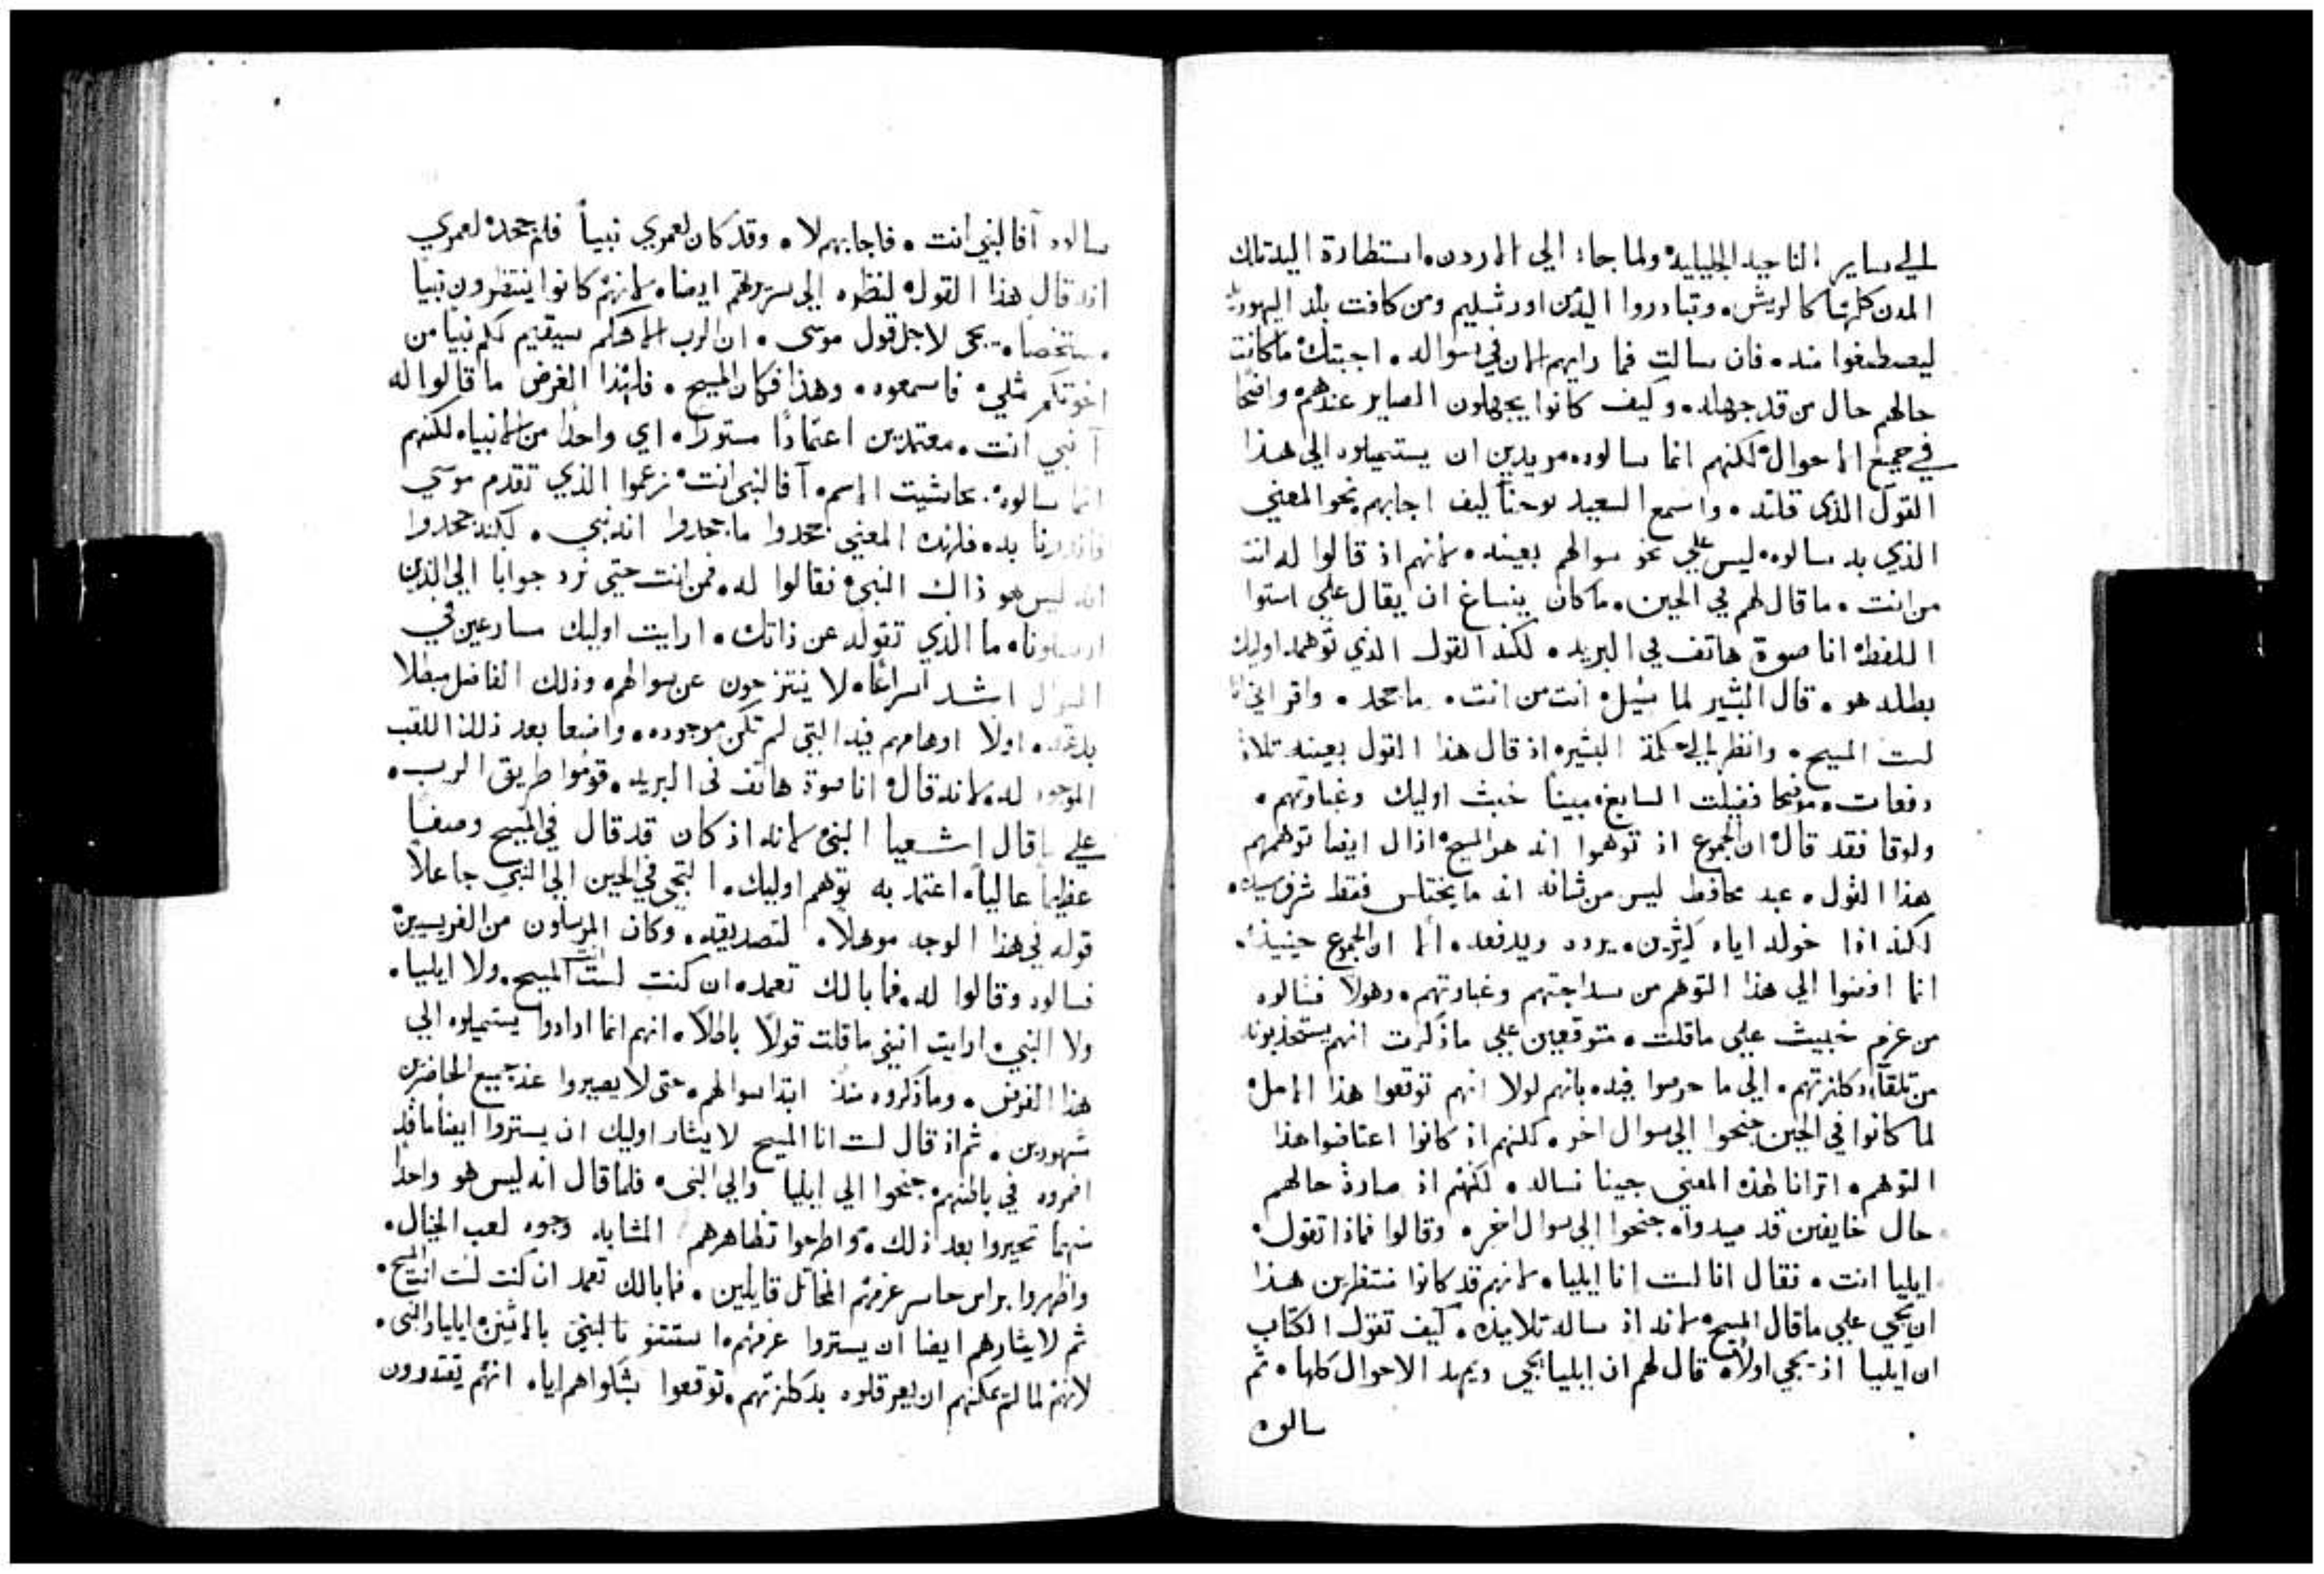 الي ساير الناحيه الجليليه ولما جاء الي الاردن استطارة اليه تلك
المدن كلها كالريش. وتبادروا اليه من اورشليم ومن كافت بلد اليهوديه
ليصطبغوا منه. فان سالت فما رايهم الان في سواله. اجبتك ما كانت
حالهم حال من قد جهله. وكيف كانوا يجهلون الصاير عندهم واضحًا
في جميع الاحوال لكنهم انما سالوه مريدين ان يستميلوه الي هذا
القول الذي قلته. واسمع السعيد يوحنا كيف اجابهم نحو المعني
الذي به سالوه ليس علي نحو سوالهم بعينه. لانهم اذ قالوا له انت
من انت. ما قال لهم في الحين. ما كان ينساغ ان يقال علي استوا
اللفظه انا صوة هاتف في البريه. لكنه القول الذي توهمه اوليك
بطله هو. قال البشير لما سيل انت من انت. ما جحد. واقر اني انا
لست المسيح. وانظر الي حكمة البشير اذ قال هذا القول بعينه تلاثة
دفعات. موضحا فضيلت السابغ مبينا خبث اوليك وغباوتهم.
ولوقا فقد قال ان الجموع اذ توهموا انه هو المسيح ازال ايضا توهمهم
هذا القول. عبد محافظ ليس من شانه انه ما يختلس فقط شرف سيده.
لكنه اذا خوله اياه كثيرين. يرده ويدفعه. الا ان الجموع حينيذ.
انما افضوا الي هذا التوهم من سداجتهم وغباوتهم. وهولا فسالوه
من عزم خبيث علي ما قلت. متوقعين علي ما ذكرت انهم يستجذبونه
من تلقاء ذكلزتهم. الي ما حرصوا فيه. بانهم لولا انهم توقعوا هذا الامل
لما كانوا في الحين جنحوا الي سوال اخر. لكنهم اذ كانوا اعتاضوا هذا
التوهم. اترانا لهذه المعني جينا نساله. لكنهم اذ صارة حالهم
حال خايفين قد صيدوا. جنحوا الي سوال اخر. وقالوا فماذا تقول.
ايليا انت. فقال انا لست انا ايليا. لانهم قد كانوا منتظرين هذا
ان يجي علي ما قال المسيح. لانه اذ ساله تلاميذه. كيف تقول الكتاب
ان ايليا اذ يجي اولاً. قال لهم ان ايليا يجي ويمهد الاحوال كلها. ثم
سالوه
سالوه آفالنبي انت. فاجابهم لا. وقد كان لعمري نبياً فلم جحده لعمري
انه قال هذا القول لنظره الي سريرتهم ايضا. لانهم كانوا ينتظرون نبيا
مستخصا. يجي لاجل قول موسي. ان الرب الاهكم سيقيم لكم نبيا من
اخوتكم مثلي فاسمعوه. وهذا فكان المسيح. فلهذا الغرض ما قالوا له
آ نبي انت. معتمدين اعتمادًا مستورًا. اي واحدًا من الانبيا. لكنهم
انما سالوه بحاشيت الاسم. آفالنبي انت زعموا الذي تقدم موسي
فانذرنا به. فلهذه المعني جحدوا ما جحدوا انه نبي. لكنه جحدوا
انه ليس هو ذاك النبي فقالوا له. فمن انت حتي نرد جوابا الي الذين
ارسلونا. ما الذي تقوله عن ذاتك. ارايت اوليك مسارعين في
السوال اشد اسراعًا. لا ينتزحون عن سوالهم. وذلك الفاضل مبطلا
بدعته. اولًا اوهامهم فيه التي لم تكن موجوده. واضعا بعد ذلك اللقب
الموجود له. لانه قال انا صوة هاتف في البريه. قوموا طريق الرب.
علي ما قال اشعيا النبي لانه اذ كان قد قال في المسيح وصفاً
عظيما عالياً. اعتمد به توهم اوليك. التجي في الحين الي النبي جاعلاً
قوله في هذا الوجه موهلاً. لتصديقه. وكان المرسلون من الفريسيين
فسالوه وقالوا له. فما بالك تعمد. ان كنت لست انت المسيح. ولا ايليا.
ولا النبي. ارايت انني ما قلت قولًا باطلًا. انهم انما ارادوا يستميلوه الي
هذا الغرض. وما ذكروه منذ ابتدا سوالهم. حتي لا يصيروا عند جميع الحاضرين
شهودين. ثم اذ قال لست انا المسيح لايثار اوليك ان يستروا ايضا ما قد
اضمروه في باطنهم. جنحوا الي ايليا والي النبي. فلما قال انه ليس هو واحدًا
منهما تحيروا بعد ذلك. واطرحوا تظاهرهم المشابه وجوه لعب الخيال.
واظهروا براس حاسر عزمهم المخاتل قايلين. فما بالك تعمد ان كنت لست انت المسيح.
ثم لايثارهم ايضا ان يستروا عزمهم. استتنو بالاثنين ايليا والنبي.
لانهم لما لم يمكنهم ان يعرقلوه بذكلزتهم. توقعوا بشكواهم اياه انهم يقتدرون